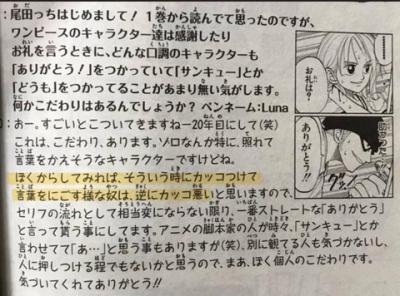 ：尾田っちはじめまして！ 1巻から読んでて思ったのですが、
ワンピースのキャラクター達は感謝したり
お礼を言うときに、どんな口調のキャラクターも
「ありがとう！」をつかっていて「サンキュー」とか
「どうも」をつかってることがあまり無い気がします。
何かこだわりはあるんでしょうか？ ペンネーム:Luna
：おー。すごいとこついてきますねー20年目にして(笑)
これは、こだわり、あります。ゾロなんか特に、照れて
言葉をかえそうなキャラクターですけどね。
ぼくからしてみれば、そういう時にカッコつけて
言葉をにごす様な奴は、逆にカッコ悪いと思いますので、
セリフの流れとして相当変にならない限り、一番ストレートな「ありがとう」
と言って貰う事にしてます。アニメの脚本家の人が時々、“サンキュー”とか
言わせてて「あ…」と思う事もありますが(笑)、別に観てる人も気づかないし、
人に押しつける程でもないかと思うので、まあ、ぼく個人のこだわりです。
気づいてくれてありがとう!!
お礼は？
ありがとう!!